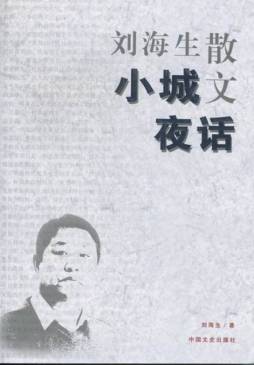 刘海生散
小城文
夜话
刘海生/著
中国文史出版社